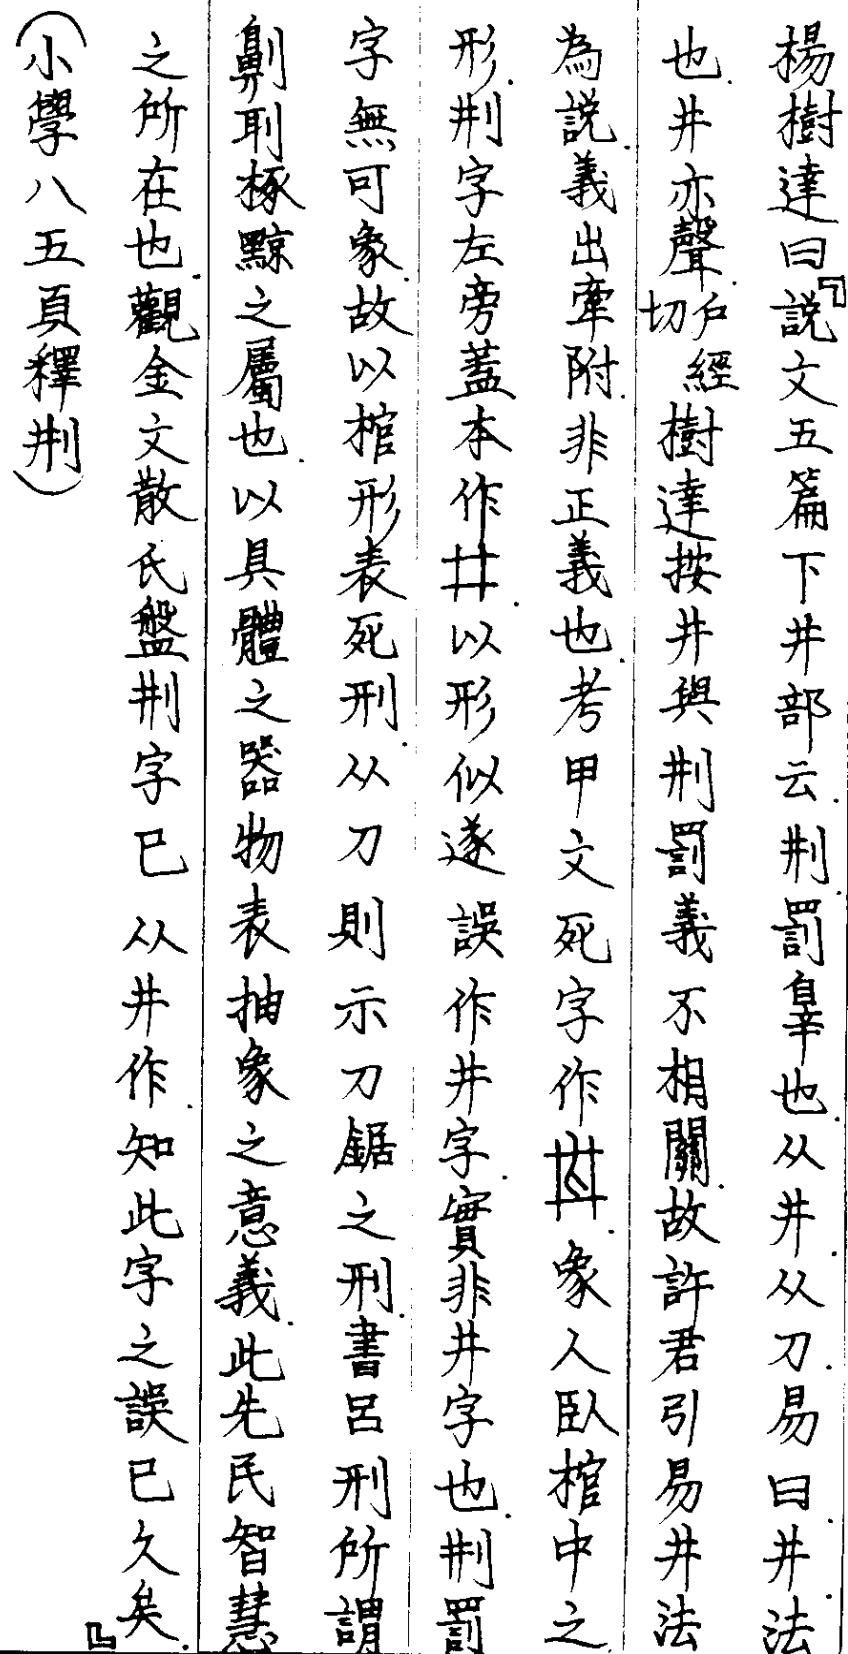 楊樹達曰『說文五篇下井部云.㓝罰辠也.从井.从刀.易曰.井法
也.井亦聲.戶經切樹達按井與㓝罰義不相關.故許君引易井法
為說.義出牽附.非正義也.考甲文死字作𡆤.象人臥棺中之
形.㓝字左旁蓋本作井.以形似遂誤作井字.實非井字也.㓝罰
字無可象.故以棺形表死刑.从刀則示刀鋸之刑.書呂刑所謂
劓刵椓黥之屬也.以具體之器物表抽象之意義.此先民智慧
之所在也.觀金文散氏盤㓝字已从井作.知此字之誤已久矣.』
(小學八五頁釋㓝)